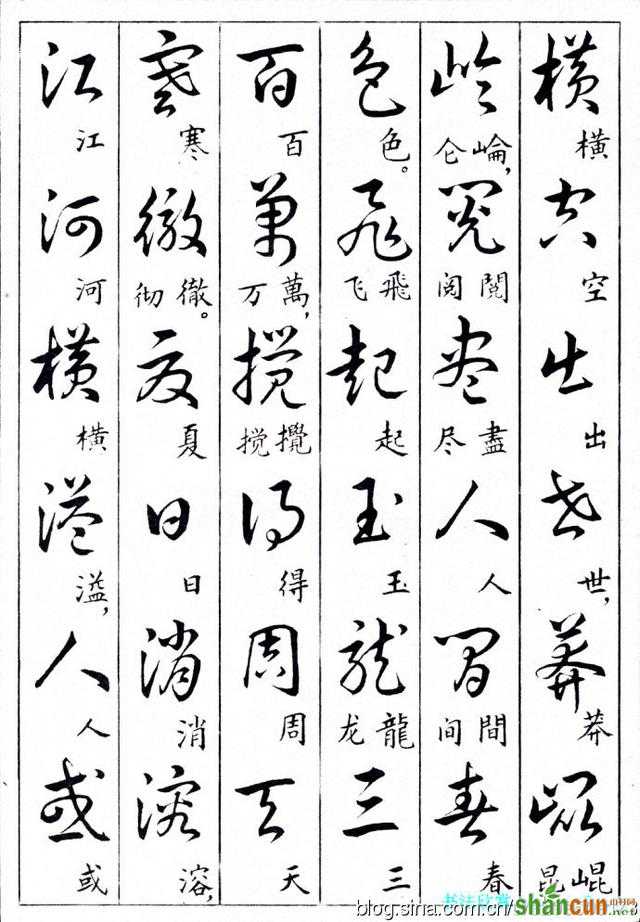 横空出世莽崐
横 空 出 世, 莽 崐昆
崘閱盡人間春
崘,仑 閱阅 盡尽 人 間间 春
色飛起玉龍三
色。 飛飞 起 玉 龍龙 三
百萬攪得周天
百 萬,万 攪搅 得 周 天
寒徹夏日消溶
寒 徹。彻 夏 日 消 溶,
江河横溢人或
江 河 横 溢, 人 或
书法欣赏
shancun
blog.sina.com.cn